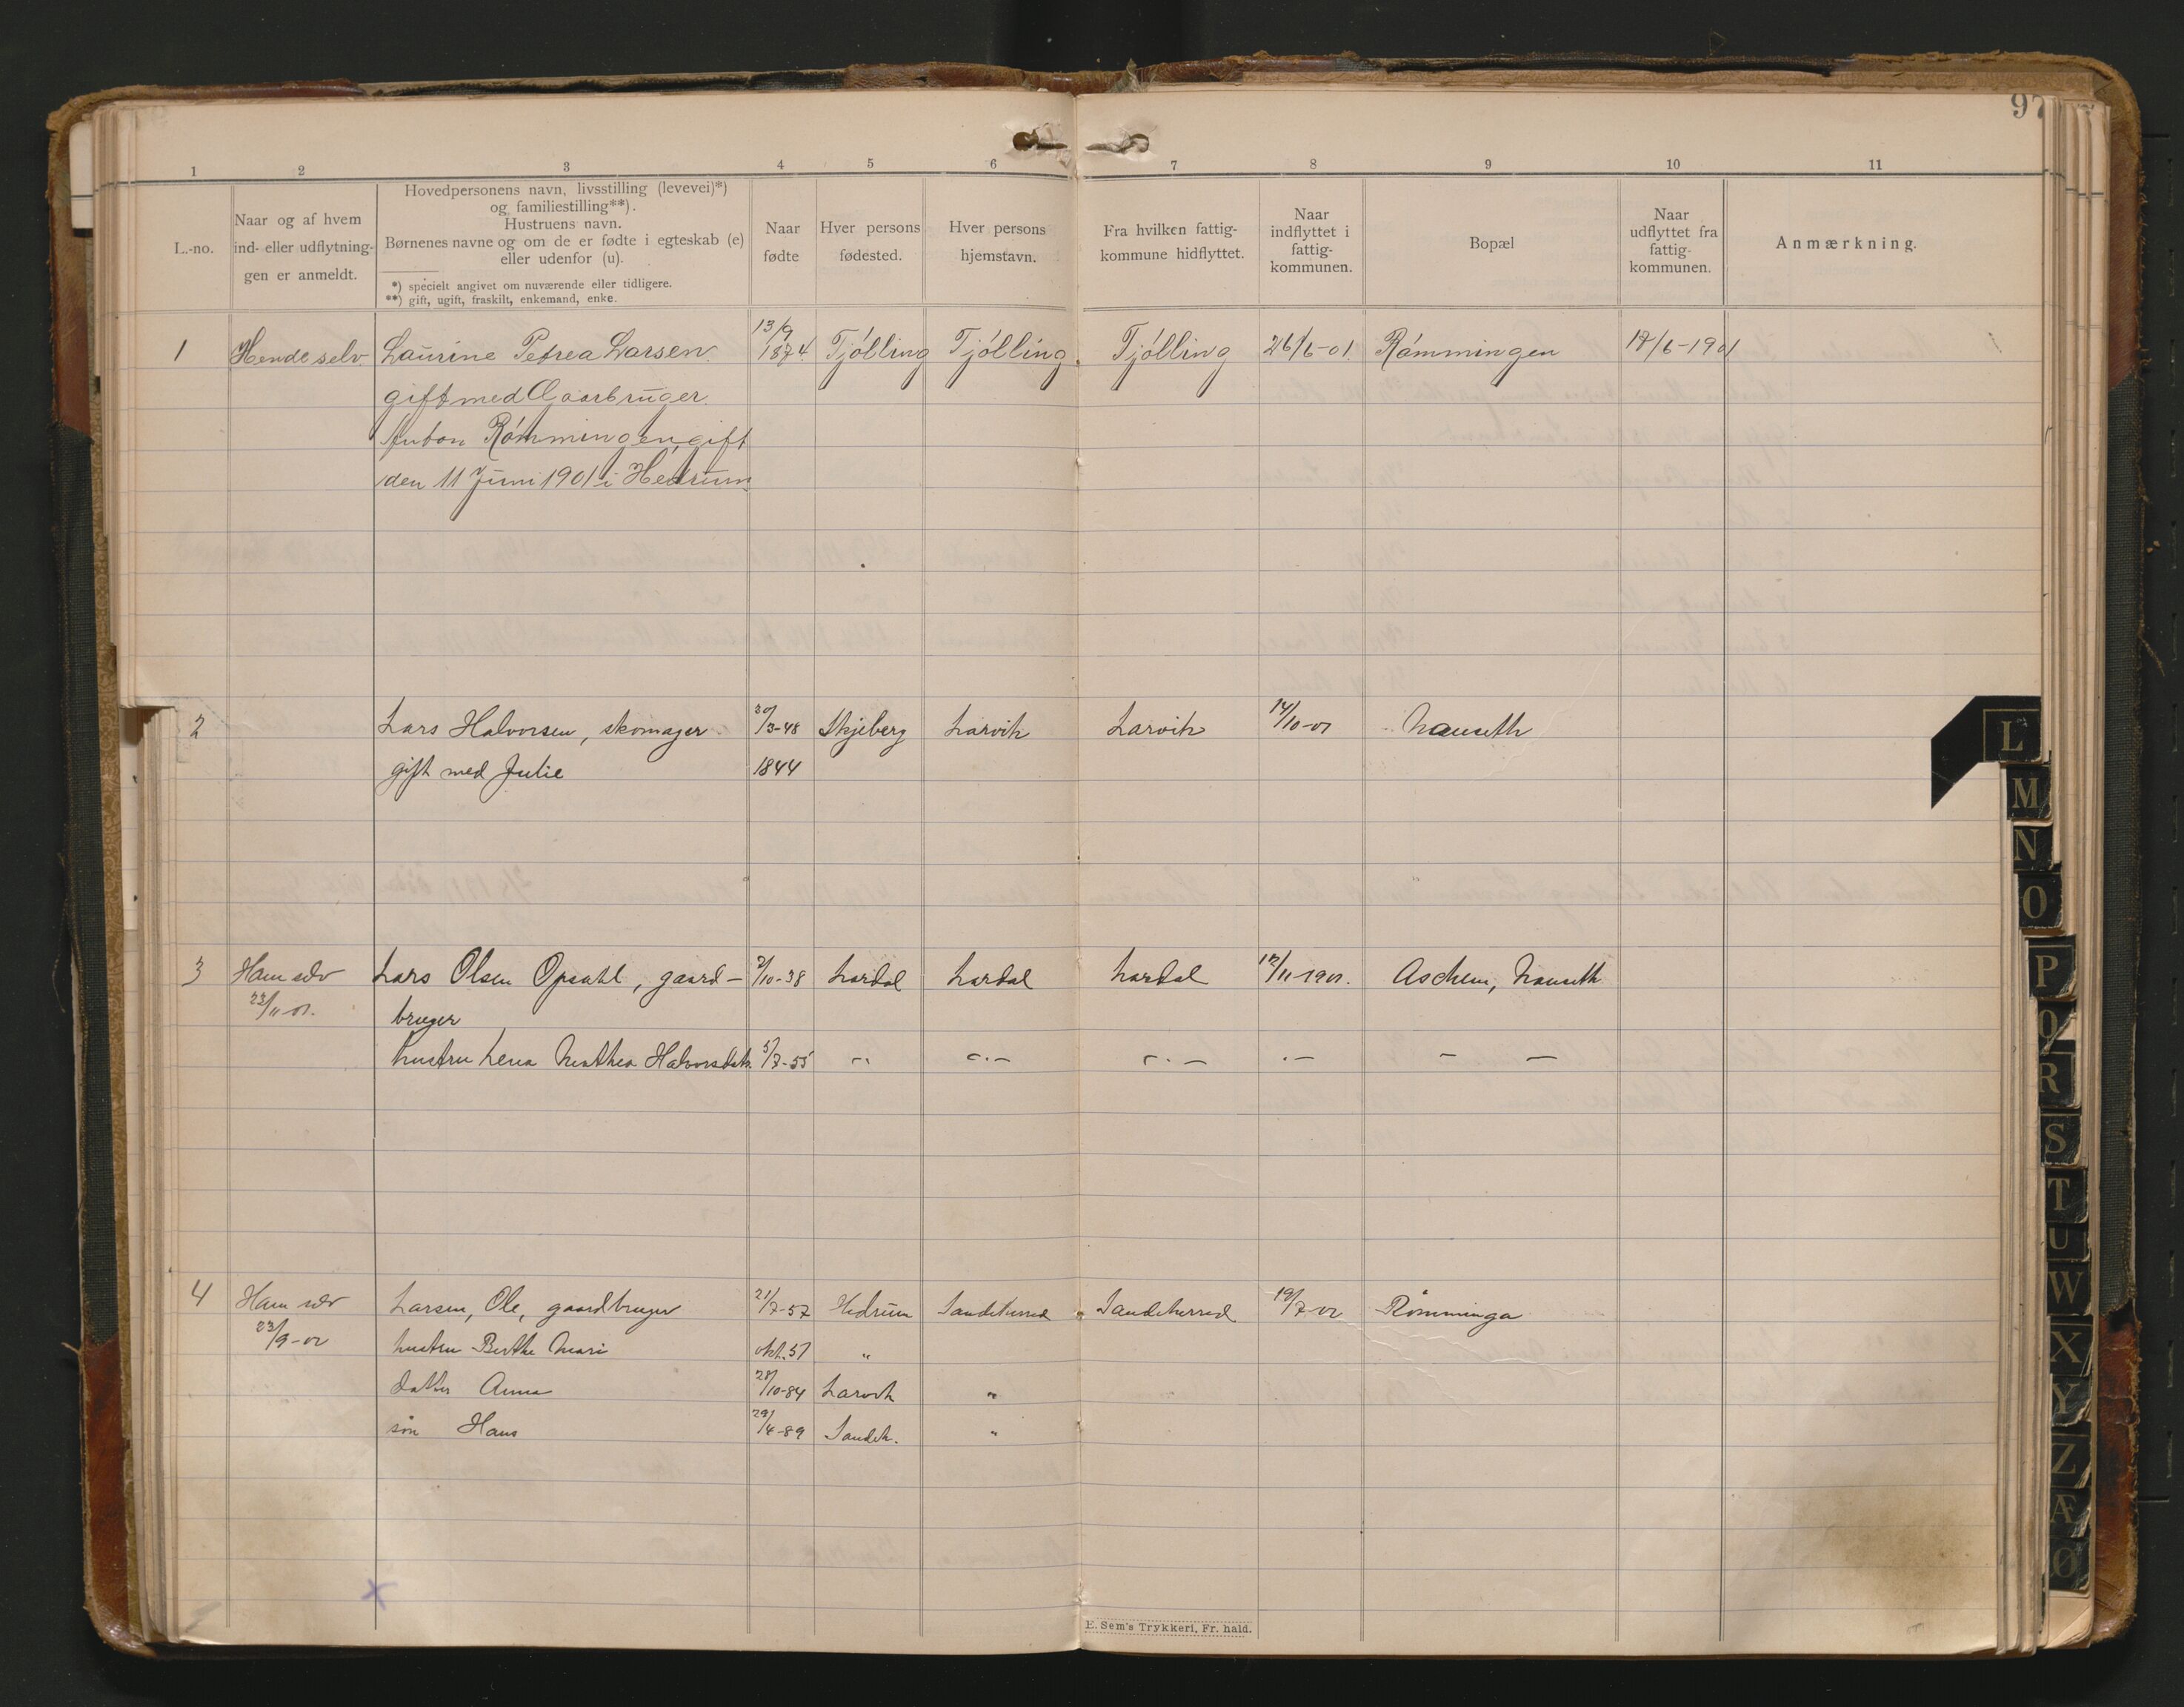 97
1 2 3 4 5 6 7 8 9 10 11
L.-no.
Naar og af hvem
ind- eller udflytnin-
gen er anmeldt.
Hovedpersonens navn, livsstilling (levevei)*)
og familiestilling**).
Hustruens navn.
Børnenes navne og om de er fødte i egteskab (e)
eller udenfor (u).
*) specielt angivet om nuværende eller tidligere.
**) gift, ugift, fraskilt, enkemand, enke.
Naar
fødte
Hver persons
fødested.
Hver persons
hjemstavn.
Fra hvilken fattig-
kommune hidflyttet.
Naar
indflyttet i
fattig-
kommunen.
Bopæl
Naar
udflyttet fra
fattig-
kommunen.
Anmærkning.
1 Hende selv Laurine Petrea Larsen 13/9 1874 Tjölling Tjölling Tjölling 26/6-01. Römmingen 17/6-1901
gift med Gaarbruger
Anton Römmingen, gift
den 11 Juni 1901 i Hedrum
2 Lars Halvorsen, skomager 30/3-48 Skjeberg Larvik Larvik 14/10-01 Nauseth
gift med Julie 1844
3 Ham selv Lars Olsen Opsahl, gaard- 2/10-38 Lardal Lardal Lardal 12/11-1901. Aschem, Nauseth
23/11-01. bruger
hustru Lena Mathea Halvorsdatr. 5/7-55 -"- -"- -"- -"- - -
4 Ham selv Larsen, Ole, gaardbruger 21/7-57 Hedrum Sandeherred Sandeherred 19/7-02 Römminga
23/9-02 hustru Berthe Mari okt. 57 "
datter Anna 28/10-84 Larvik "
sön Hans 29/4-89 Sandeh. "
E. Sem's Trykkeri, Fr. hald.
L
M
N
O
P
Q
R
S
T
U
W
X
Y
Z
Æ
Ø